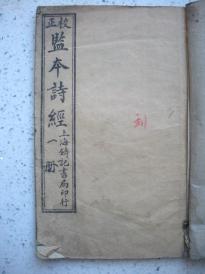 校正
監本詩經
一册
上海鑄記書局印行